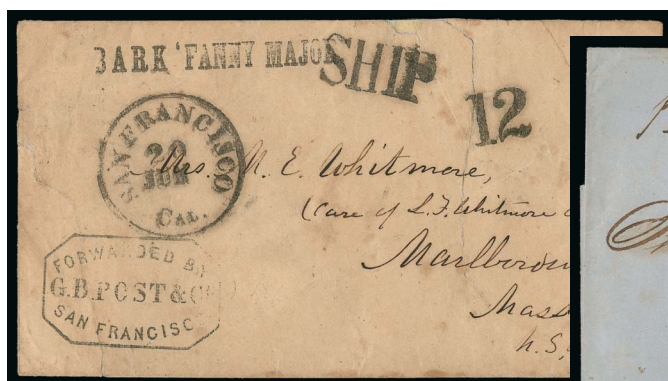 BARK 'FANNY MAJOR
SHIP
12
SAN FRANCISCO
20
JUN
CAL.
Mrs. N. E. Whitmore,
(Care of L. F. Whitmore
Marlborou
Mass
U.S.
FORWARDED B
G.B. POST & C
SAN FRANCISC